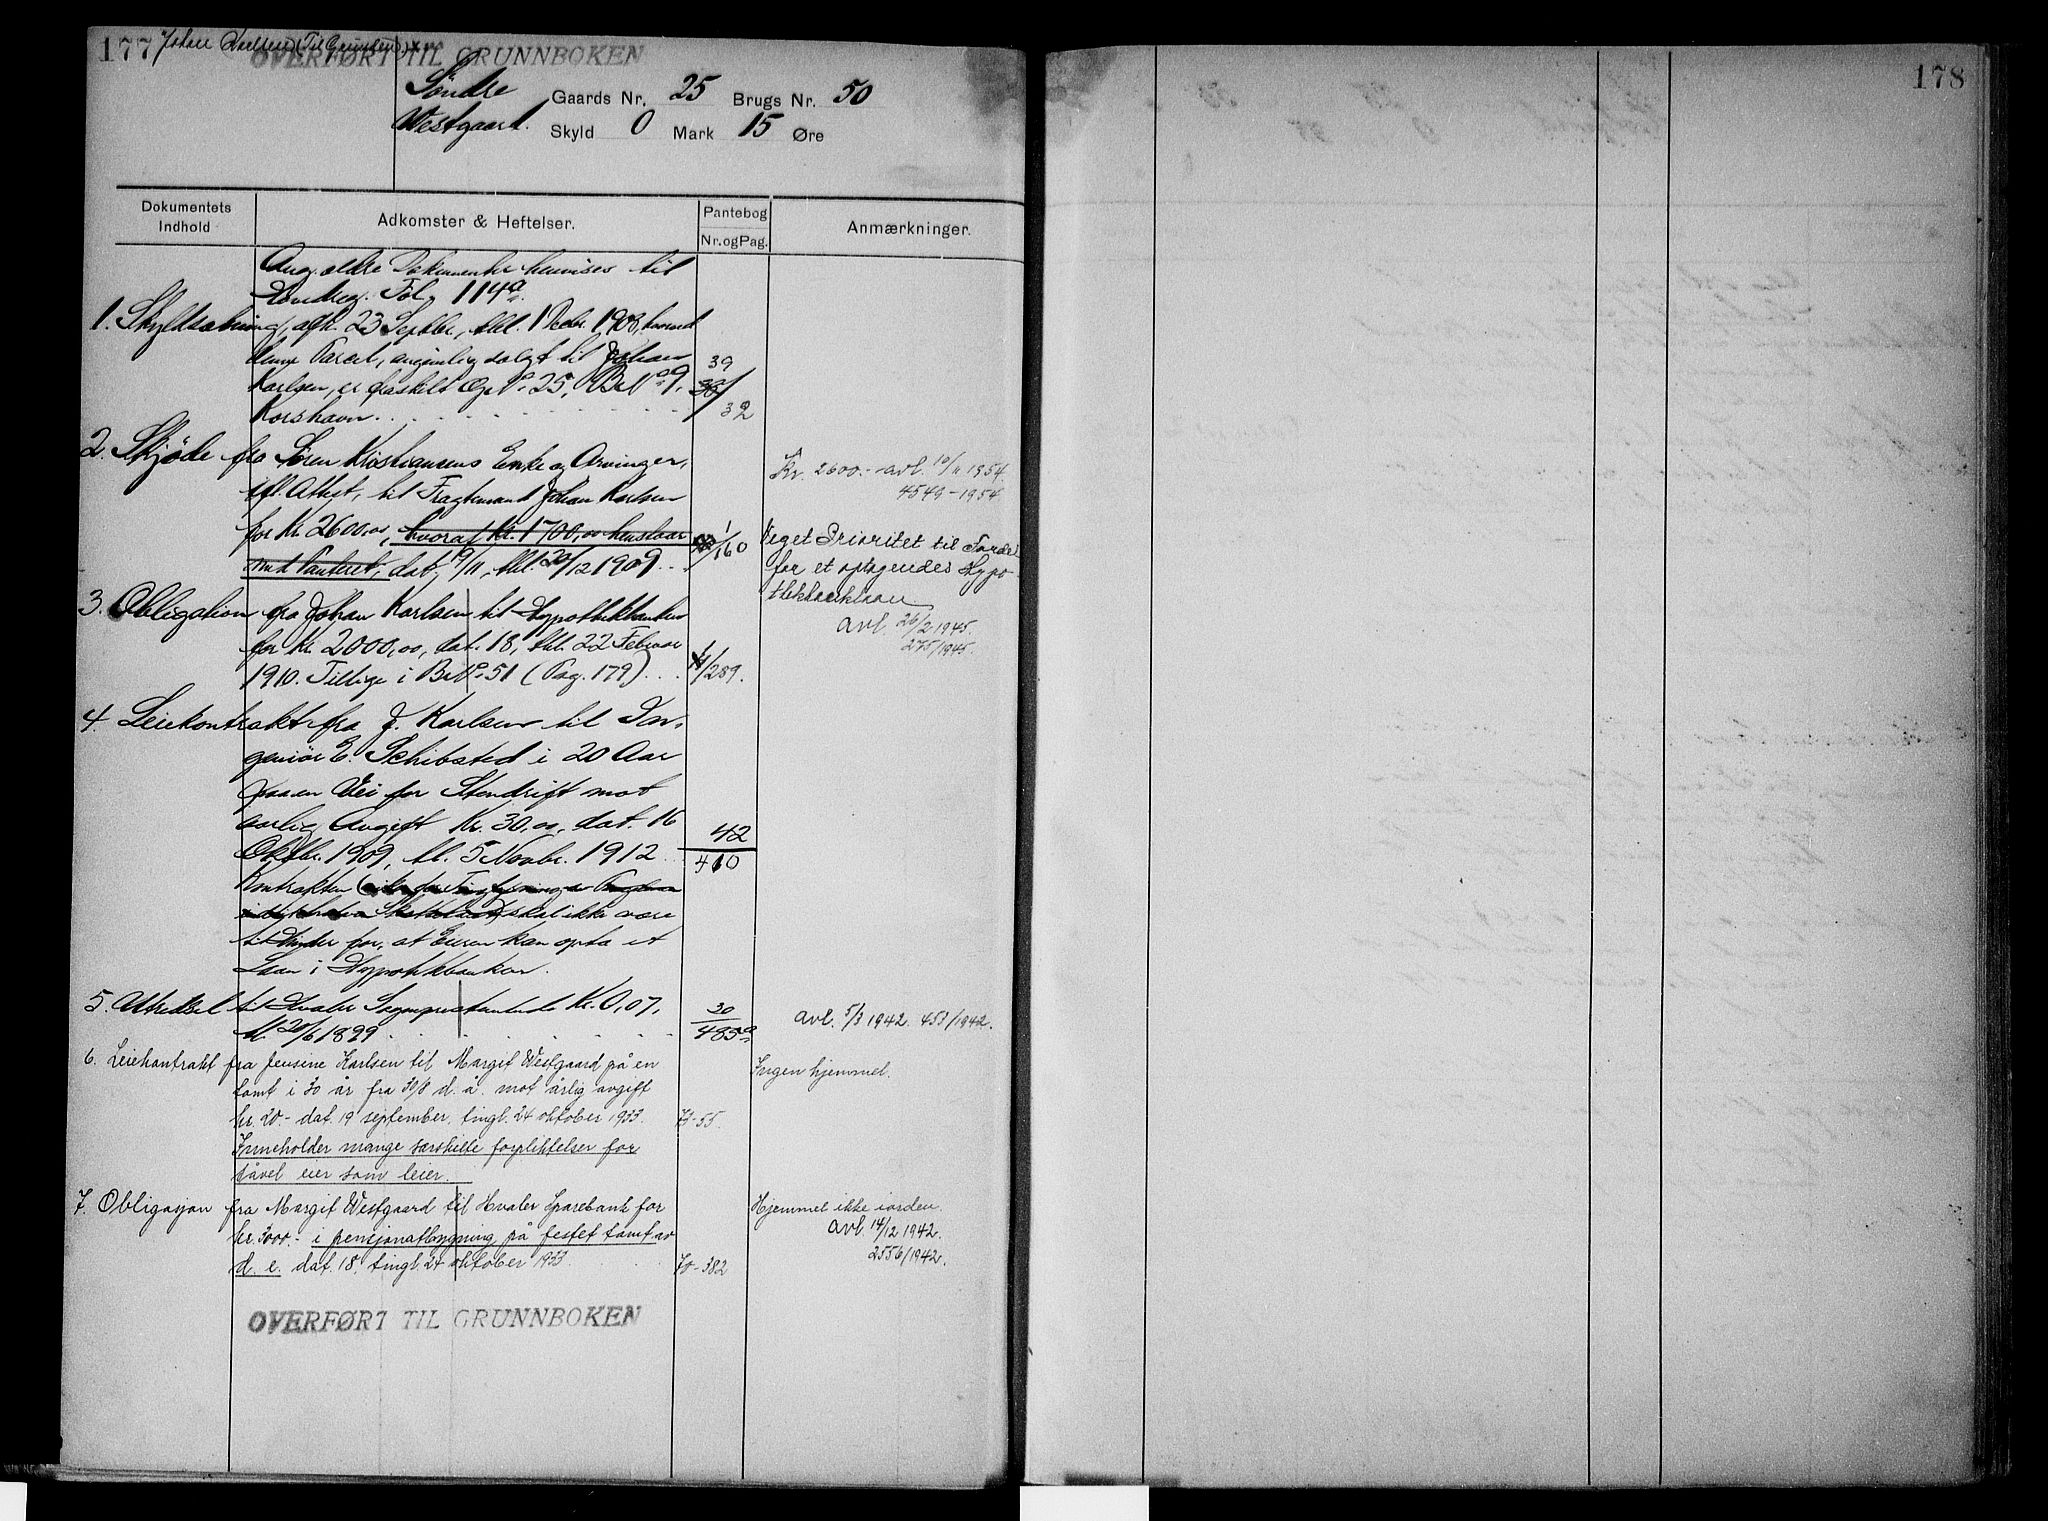 177 Johan Karlsen (Til Grunden)
OVERFØRT TIL GRUNNBOKEN
Søndre Gaards Nr. 25 Brugs Nr. 50
Westgaard. Skyld 0 Mark 15 Øre
Dokumentets Indhold
Adkomster & Heftelser.
Pantebog
Nr. og Pag.
Anmærkninger.
Ang. ældre Dokumenter henvises til
Fol. 114a.
1. Skyldsætning, afh. 23 Septbr., thl. 1 Decbr. 1908, hvorved
denne Parcel, angivelig solgt til Johan
Karlsen, er fraskilt Gr No 25, Br No 9,
Korshavn. . . 39/32
2. Skjøde fra Søren Kristiansens Enke og Arvinger,
ifl. Attest, til Fragtemand Johan Karlsen
for Kr. 2600,00, hvoraf Kr. 1700,00 henstaar
mod Panteret, dat. 9/11, thl. 20/12 1909 . . 1/160
Kr. 2600.- avl. 10/11 1954.
4549-1954
Veget Prioritet til Fordel
for et optagendes Hypo-
thekbanklaan
avl. 26/2 1945.
275/1945.
3. Obligation fra Johan Karlsen til Hypothekbanken
for Kr. 2000,00, dat. 18, thl. 22 Februar
1910. Tillige i Br No 51 (Pag. 179) . . 1/289.
4. Leiekontrakt fra J. Karlsen til In-
geniør E. Schibsted i 20 Aar
paa en Vei for Stendrift mot
aarlig Avgift Kr. 30,00, dat. 16
Oktbr. 1909, tl. 5 Novbr. 1912 42/410
Kontrakten skal ikke være
til Hinder for, at Eieren kan opta et
Laan i Hypotekbanken.
5. Utredsel til Hvaler Sogneprestembede Kr. 0,07,
tl. 20/6 1899 . . . 30/485a
avl. 5/3 1942. 453/1942.
6. Leiekontrakt fra Jensine Karlsen til Margit Westgaard på en
tomt i 30 år fra 30/8 d. å. mot årlig avgift
kr. 20.- dat. 19 september, tingl. 24 oktober 1933. 73-55.
Inneholder mange særskilte forpliktelser for
såvel eier som leier.
Ingen hjemmel.
7. Obligasjon fra Margit Westgaard til Hvaler Sparebank for
kr. 3000.- i pensjonatbygning på festet tomt av
d. e. dat. 18, tingl. 24 oktober 1933 70-382
Hjemmel ikke i orden.
avl. 14/12 1942.
2556/1942.
OVERFØRT TIL GRUNNBOKEN
178